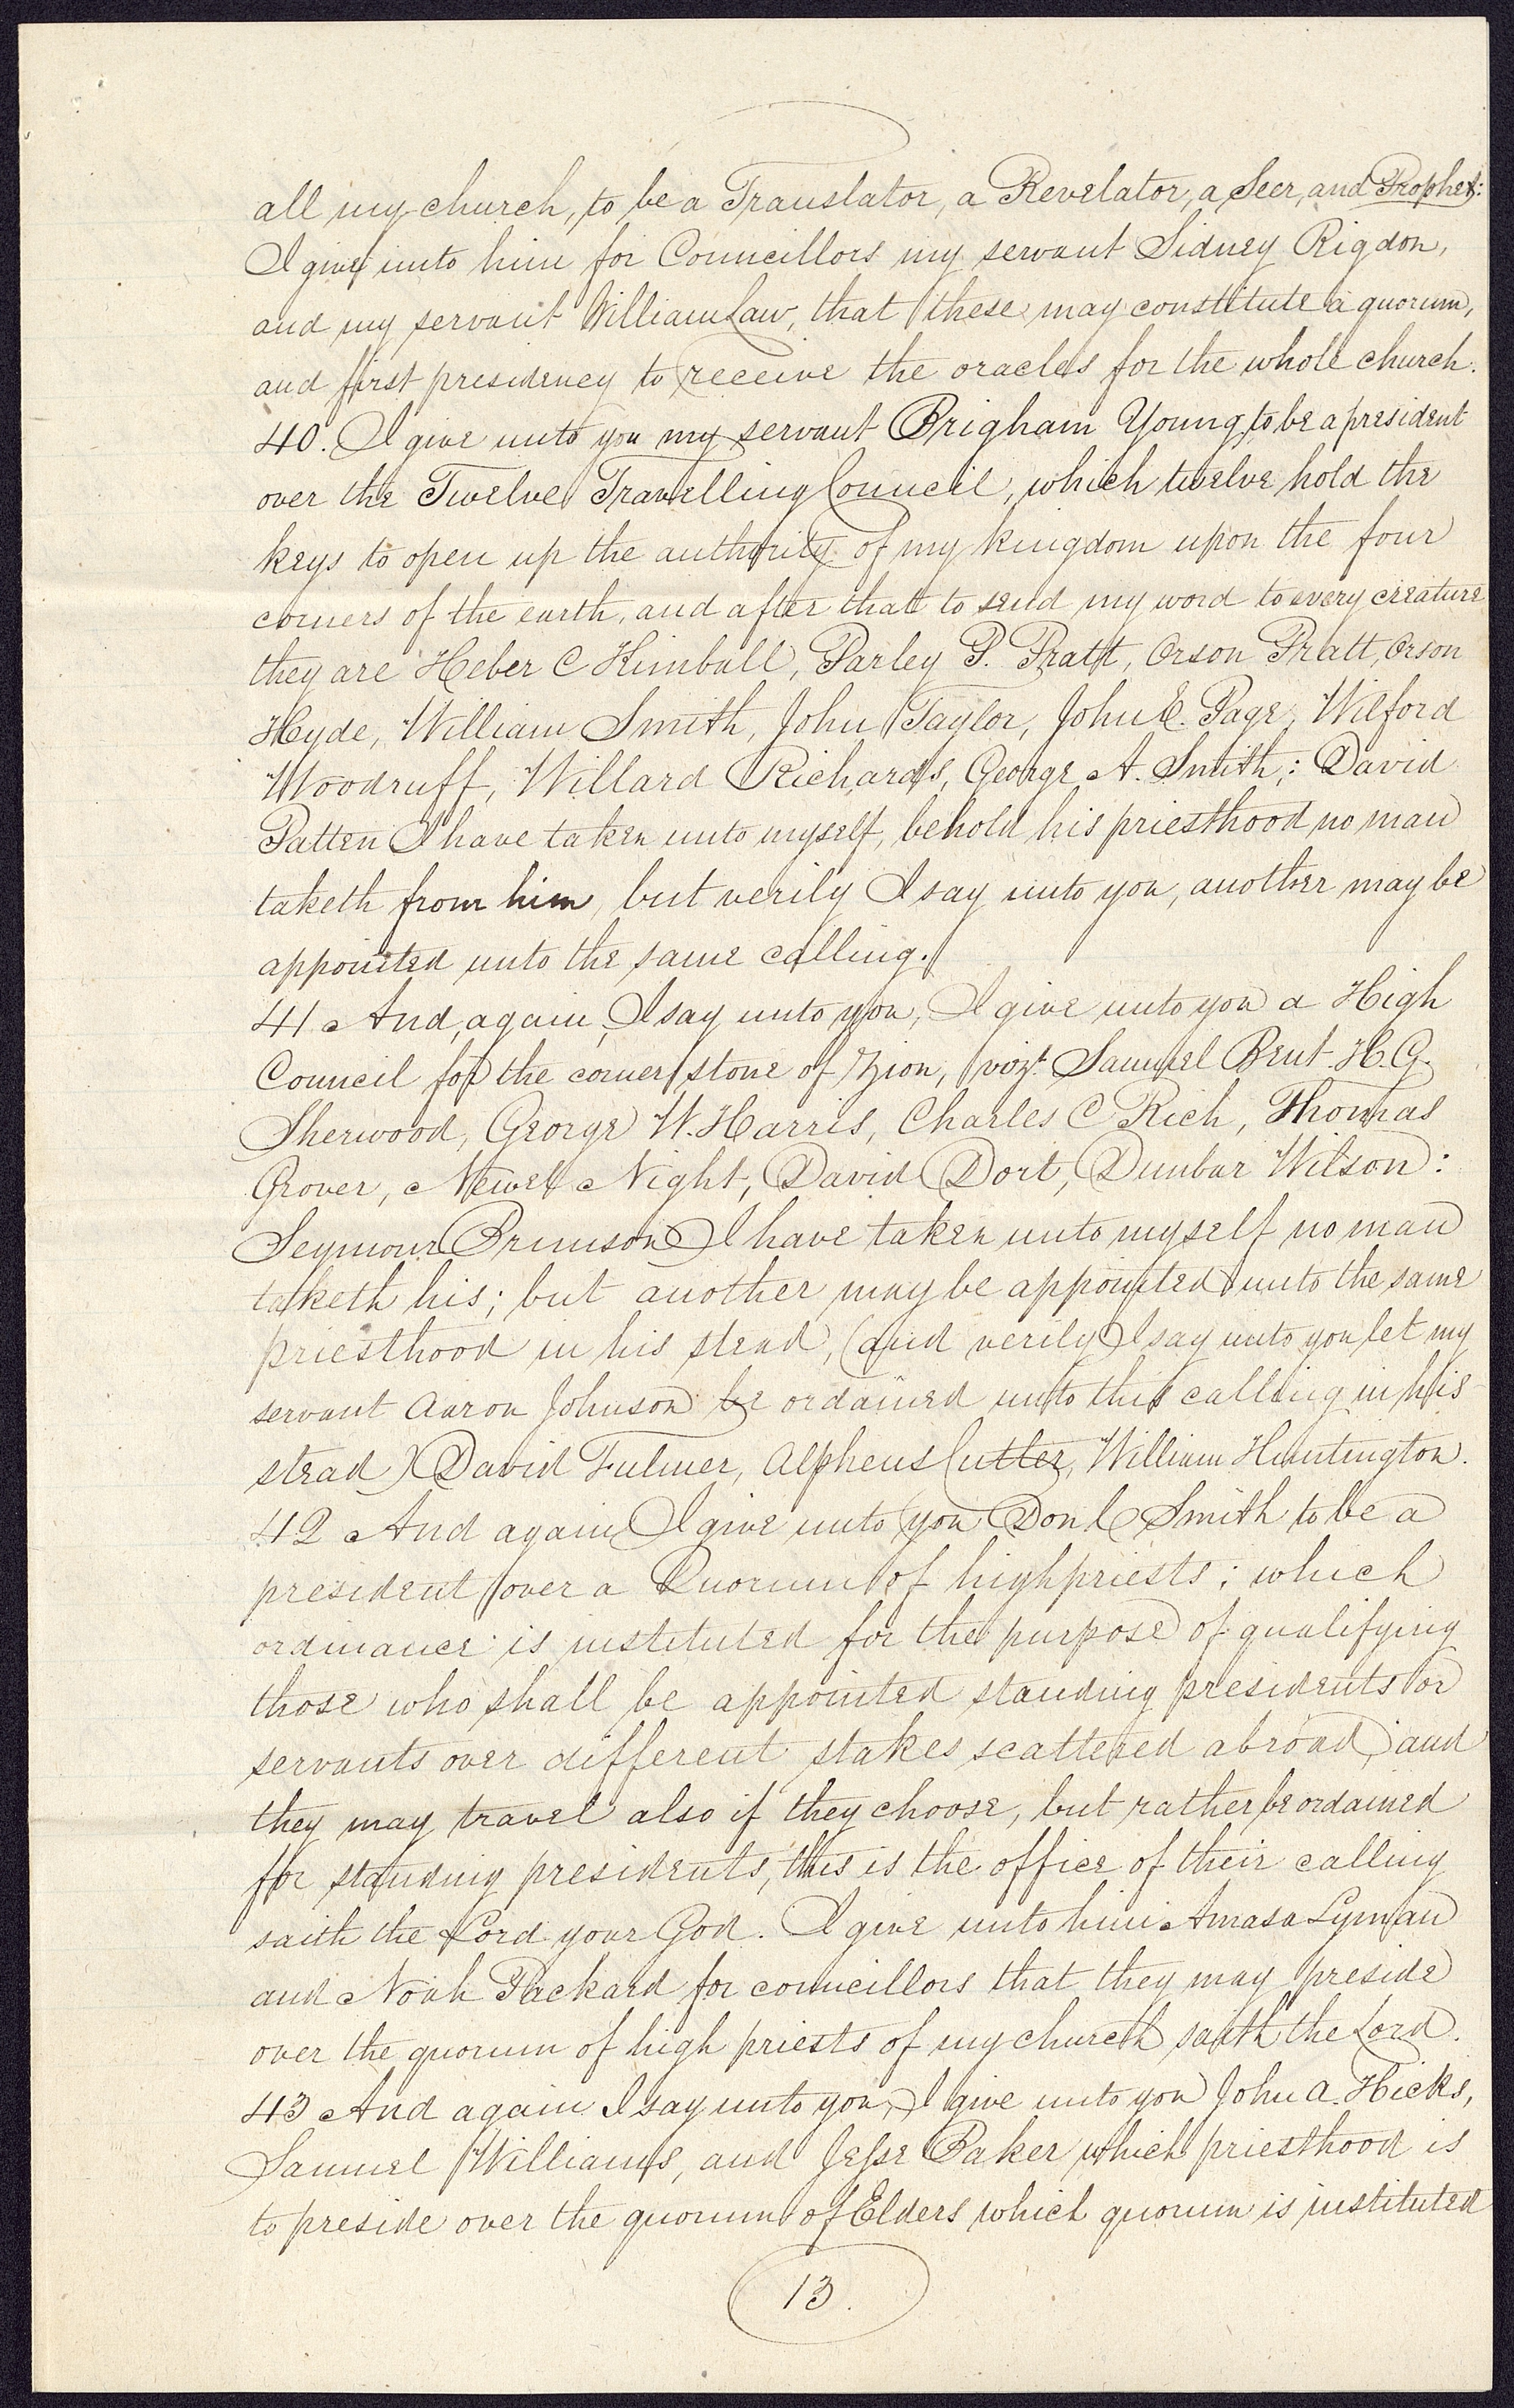 all my church, to be a Translator, a Revelator, a Seer, and Prophet:
I give unto him for Councillors my servant Sidney Rigdon,
and my servant William Law, that these may constitute a quorum,
and first presidency to receive the oracles for the whole church.
40. I give unto you my servant Brigham Young, to be a president
over the Twelve Travelling Council, which twelve hold the
keys to open up the authority of my kingdom upon the four
corners of the earth, and after that to send my word to every creature
they are Heber C Kimball, Parley P. Pratt, Orson Pratt, Orson
Hyde, William Smith, John Taylor, John E. Page, Wilford
Woodruff, Willard Richards, George A. Smith; David
Patten I have taken unto myself, behold his priesthood no man
taketh from him, but verily I say unto you, another may be
appointed unto the same calling.
41 And, again, I say unto you, I give unto you a High
Council for the corner stone of Zion, vizt. Samuel Bent H. G.
Sherwood, George W. Harris, Charles C Rich, Thomas
Grover, Newel Night, David Dort, Dunbar Wilson:
Seymour Brunson I have taken unto myself no man
taketh his; but another may be appointed unto the same
priesthood in his stead, (and verily I say unto you let my
servant Aaron Johnson be ordained unto this calling in his
stead) David Fulmer, Alpheus Cutler, William Huntington.
42 And again I give unto you Don C Smith to be a
president over a Quorum of high priests; which
ordinance is instituted for the purpose of qualifying
those who shall be appointed standing presidents or
servants over different stakes scattered abroad; and
they may travel also if they choose, but rather be ordained
for standing presidents, this is the office of their calling
saith the Lord your God. I give unto him Amasa Lyman
and Noah Packard for councillors that they may preside
over the quorum of high priests of my church saith the Lord.
43 And again I say unto you, I give unto you John A. Hicks,
Samuel Williams, and Jesse Baker which priesthood is
to preside over the quorum of Elders which quorum is instituted
13.